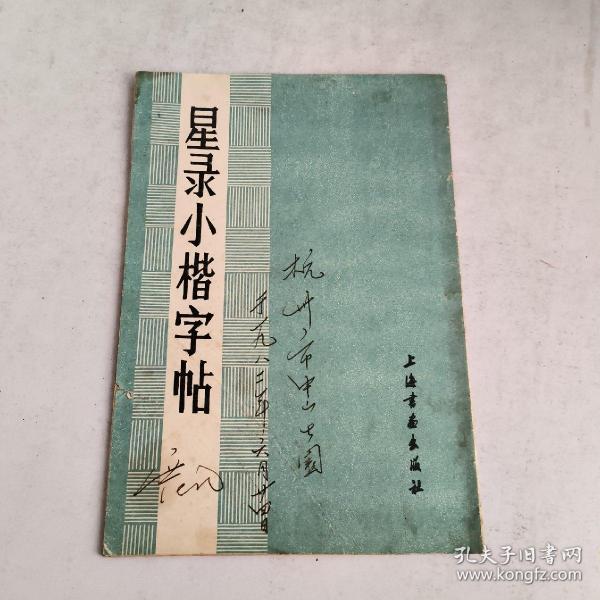 星录小楷字帖
杭州市中山公園
于一九八二年六月廿四日
上海书画出版社
孔夫子旧书网
www.kongfz.com